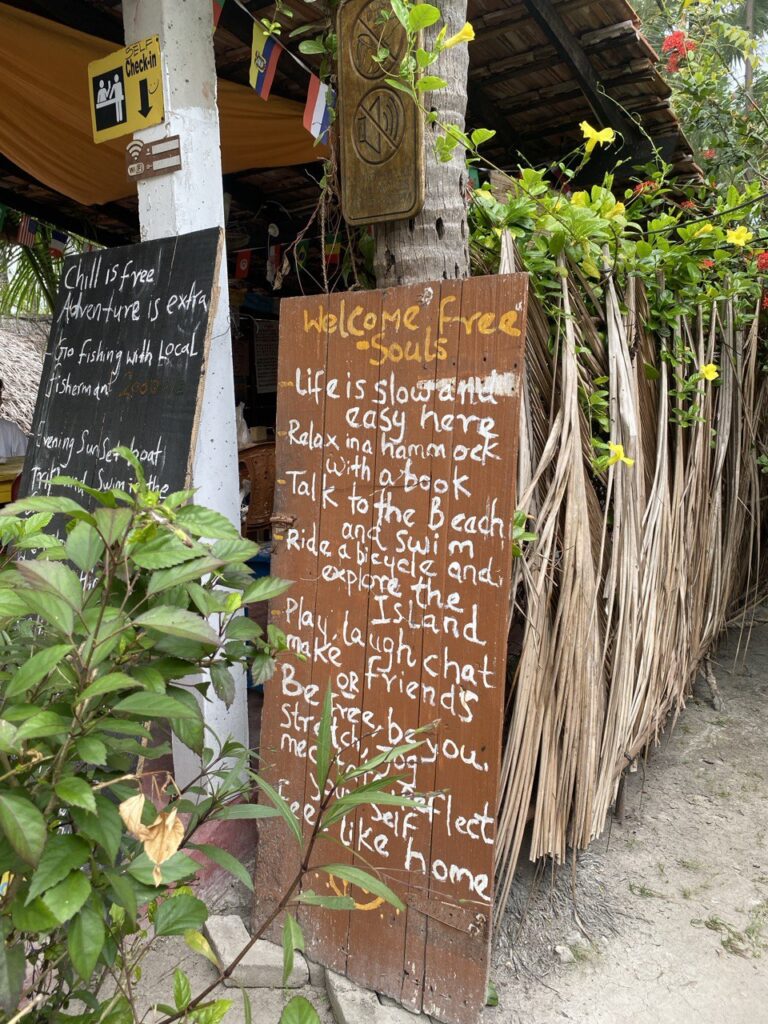 SELF
Check-in
WiFi
Chill is free
Adventure is extra
- Go fishing with Local
fisherman
Evening Sunset boat
Trip and Swim in the
Welcome Free
-Souls
-Life is slow and
easy here
-Relax in a hammock
with a book
-Talk to the Beach
and swim
-Ride a bicycle and
explore the
Island
Play, laugh chat
make friends
OR
Be free, be you,
stretch, Jog
Your self reflect
Feel like home